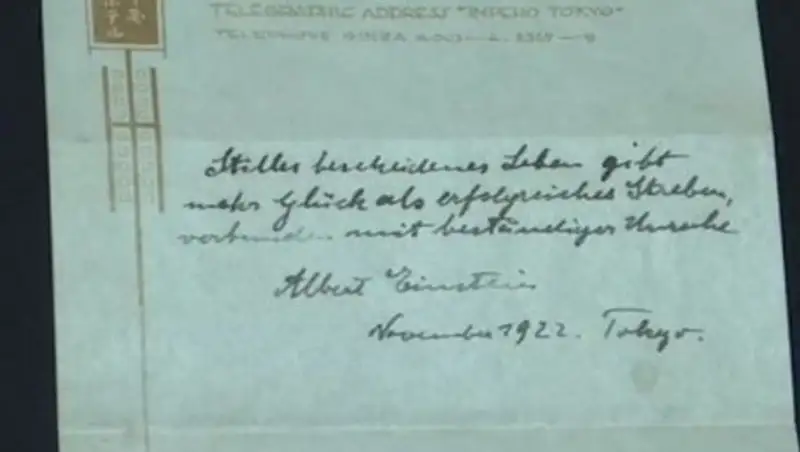 TELEGRAPHIC ADDRESS "IMPEHO TOKYO"
TELEPHONE GINZA
Stilles bescheidenes Leben gibt
mehr Glück als erfolgreiches Streben,
verbunden mit beständiger Unruhe
Albert Einstein
November 1922. Tokyo.